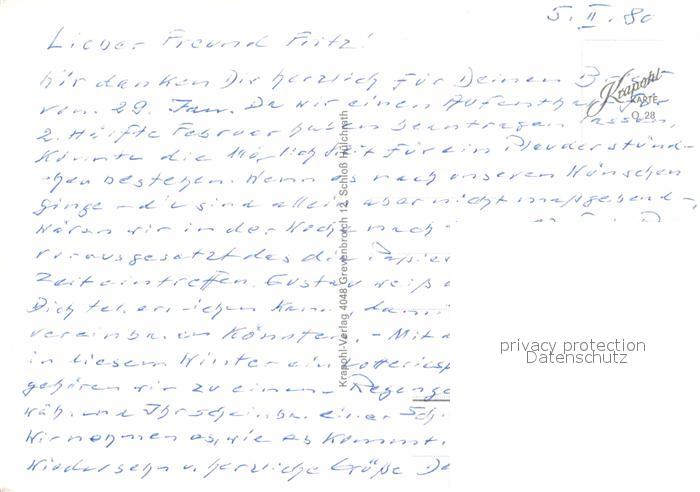 5. II. 80
Lieber Freund Fritz!
Wir danken Dir herzlich für Deinen
vom 29. Jan. Da wir einen Aufenthalt für
2. Hälfte Februar haben beantragen lassen,
könnte die Möglichkeit für ein Plauderstünd-
chen bestehen. Wenn es nach unseren Wünschen
ginge - die sind allein aber nicht maßgebend -,
wären wir in der Woche nach
vorausgesetzt das die Papiere
Zeit eintreffen. Gustav weiß
Dich tel. erreichen kann, damit
vereinbaren könnten. - Mit
in diesem Winter ein
gehören wir zu einem
während Ihr scheinbar einer
Wir nehmen es, wie es kommt.
Wiedersehn u. herzliche Grüße
Krapohl-
KARTE
Q 28
Krapohl-Verlag 4048 Grevenbroich 12, Schloß Hülchrath
privacy protection
Datenschutz